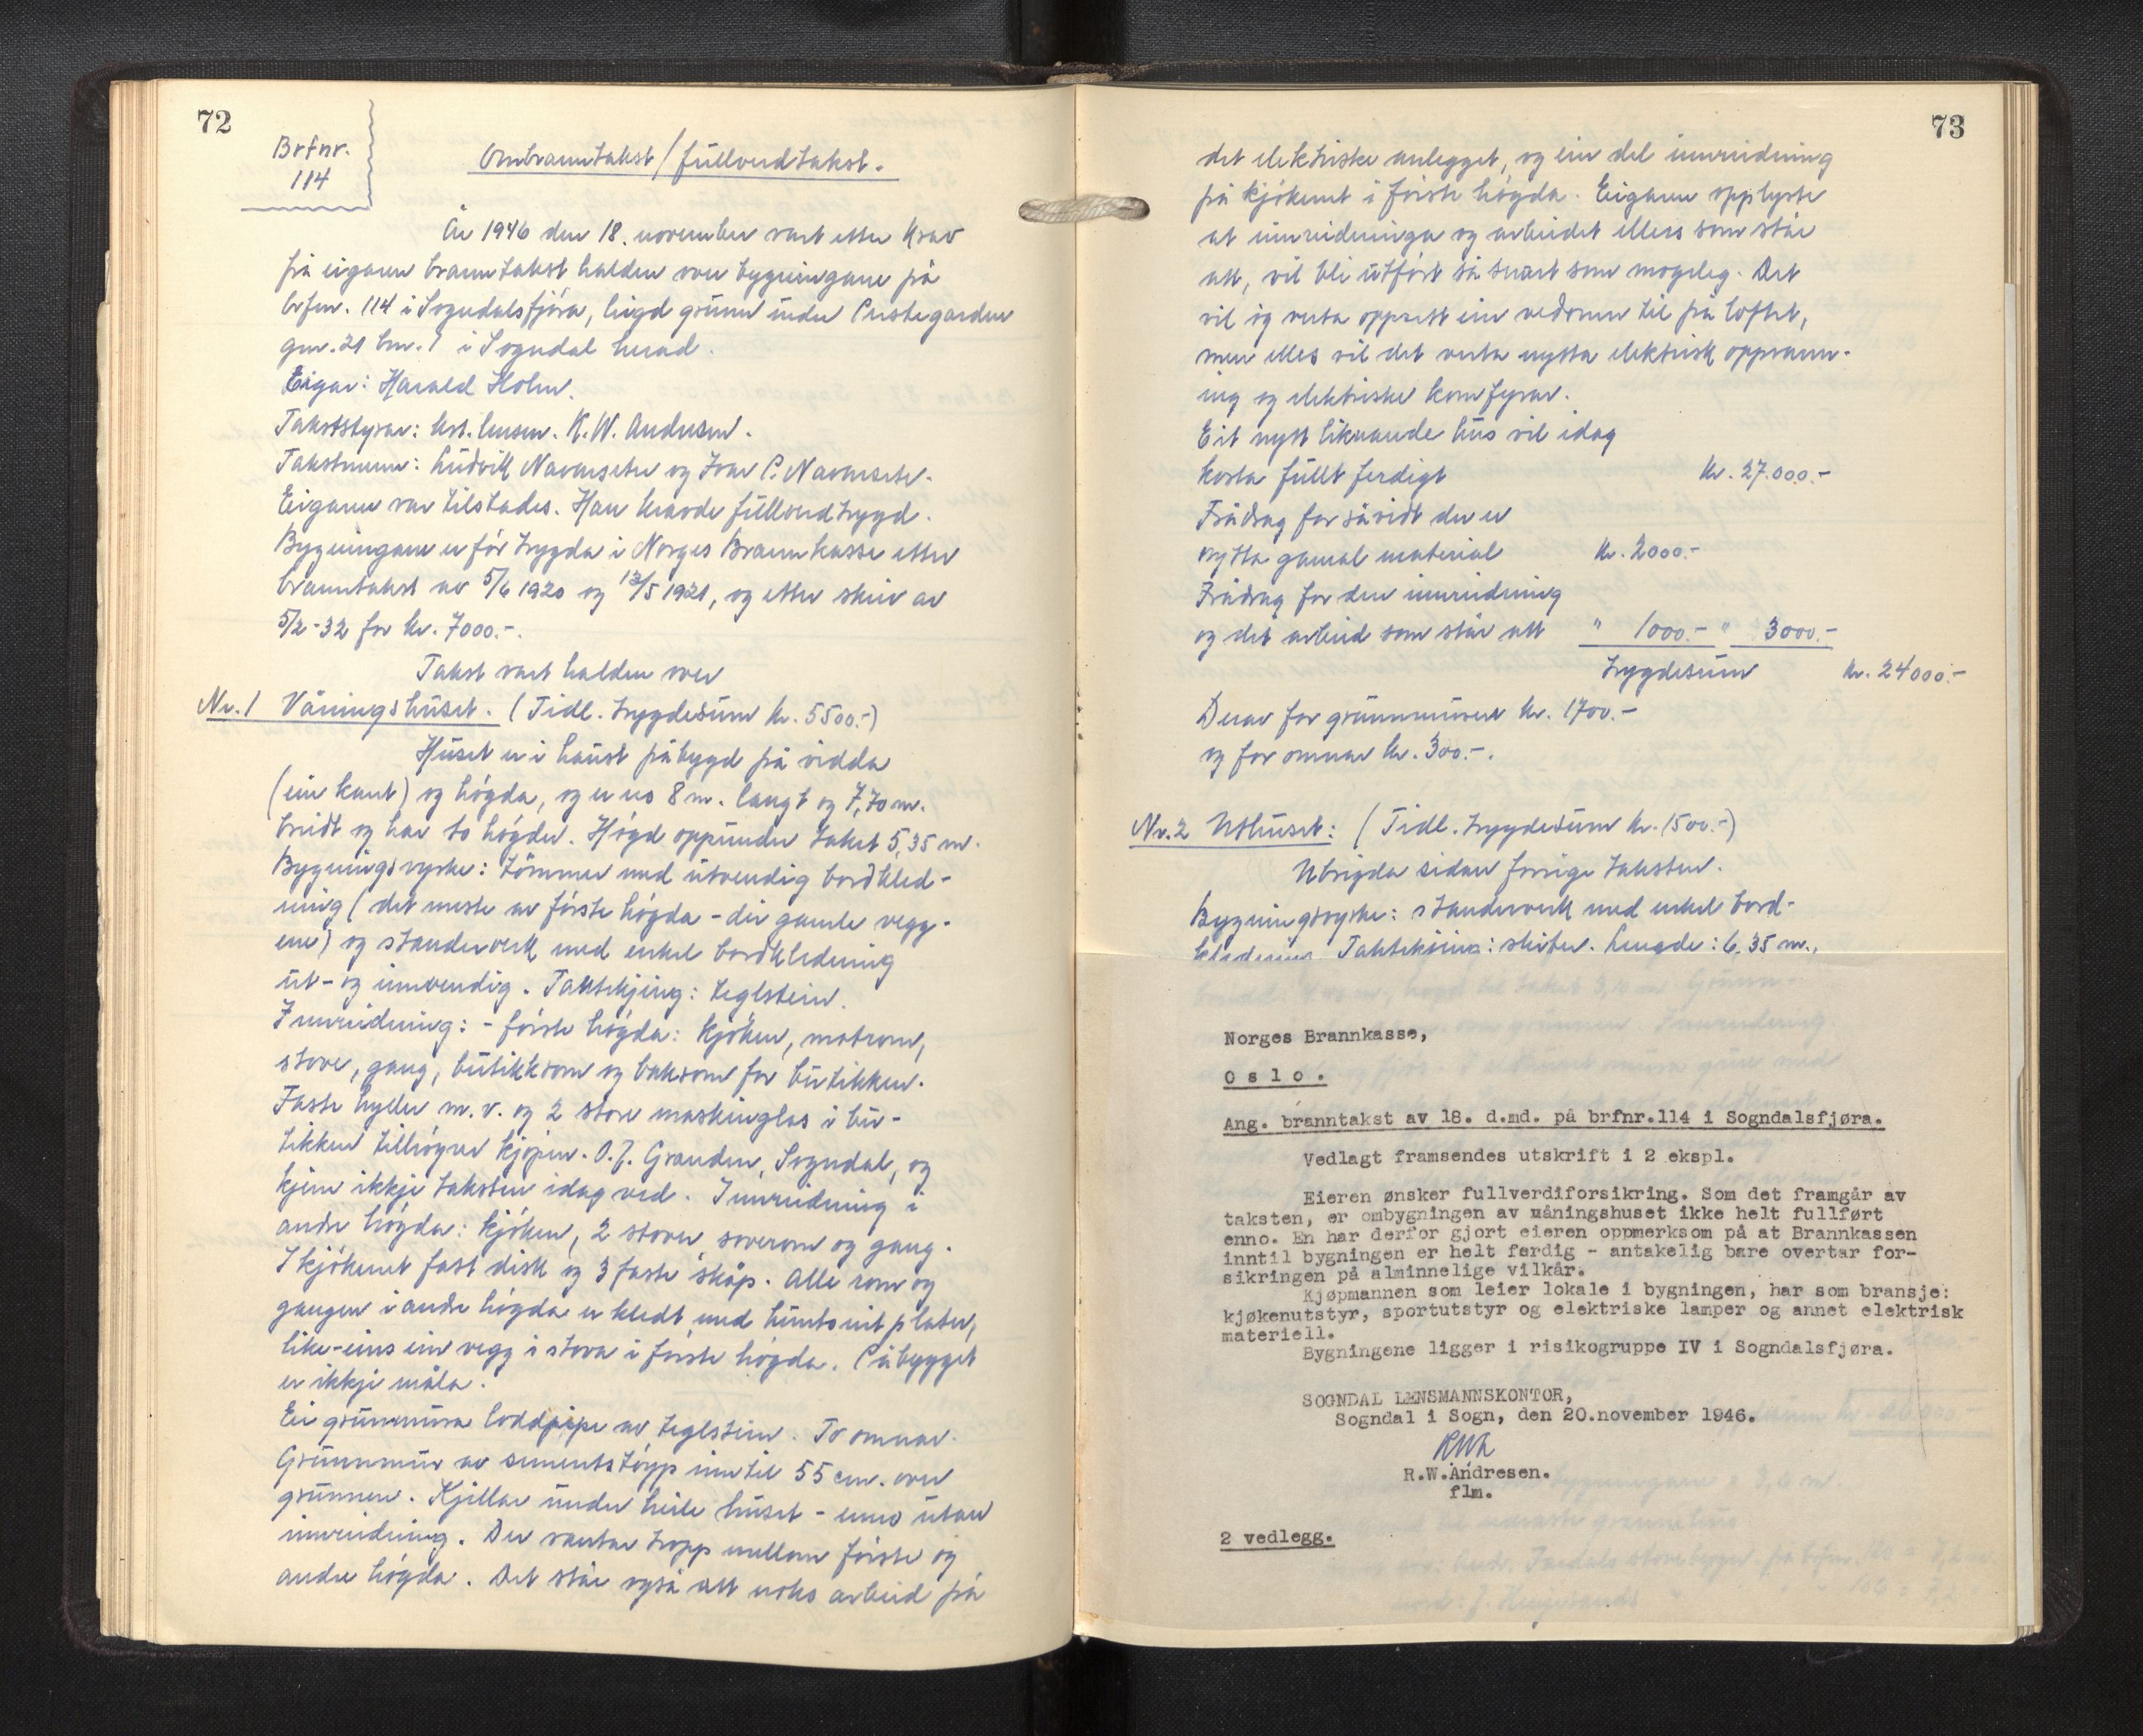 72
Brfnr.
114
Ombranntakst / fullverdtakst.
År 1946 den 18. november vart etter krav
frå eigaren branntakst halden over bygningane på
brfnr. 114 i Sogndalsfjøra, bygd grunn under Prestegarden
gnr. 21 bnr. 1 i Sogndal herad.
Eigar: Harald Holm.
Takststyrar: lensm. R. W. Andresen.
Takstmenn: Ludvik Navarsete og Ivar P. Navarsete.
Eigaren var tilstades. Han kravde fullverdtrygd.
Bygningane er før trygda i Norges Brannkasse etter
branntakst av 5/6 1920 og 12/5 1921, og etter skriv av
5/2-32 for kr. 7000.-.
Takst vart halden over
Nr. 1 Våningshuset. (Tidl. trygdesum kr. 5500.-)
Huset er i haust påbygd på vidda
(ein kant) og høgda, og er no 8 m. langt og 7,70 m.
breidt og har to høgder. Høgd oppunder taket 5,35 m.
Bygningsvyrke: tømmer med utvendig bordkled-
ning (det meste av første høgda - dei gamle vegg-
ene) og standerverk med enkel bordkledning
ut- og innvendig. Taktekjing: teglstein.
Innreidning: - første høgda: kjøken, matrom,
stove, gang, butikkrom og bakrom for butikken.
Faste hyller m. v. og 2 store maskinglas i bu-
tikken tilhøyrer kjøpm. O. J. Granden, Sogndal, og
kjem ikkje taksten idag ved. Innreidning i
andre høgda: kjøken, 2 stover soverom og gang.
I kjøkenet fast disk og 3 faste skåp. Alle rom og
gangen i andre høgda er kledt med huntonit plater,
like-eins ein vegg i stova i første høgda. Påbygget
er ikkje måla.
Ei grunnmura loddpipe av teglstein. To omnar.
Grunnmur av sementstøyp inntil 55 cm. over
grunnen. Kjellar under heile huset - enno utan
innreidning. Der vantar tropp mellom første og
andre høgda. Det står også att noko arbeid på
73
det elektriske anlegget, og ein del innreidning
på kjøkenet i første høgda. Eigaren opplyste
at innreidninga og arbeidet ellers som står
att, vil bli utført så snart som mogeleg. Det
vil og verta oppsett ein vedomn til på loftet,
men elles vil det verta nytta elektrisk oppvarm-
ing og elektriske komfyrar.
Eit nytt liknande hus vil idag
kosta fullt ferdigt kr. 27.000.-
Frådrag for såvidt der er
nytta gamal material kr. 2000.-
Frådrag for den innreidning
og det arbeid som står att " 1000.- " 3000.-
trygdesum kr. 24000.-
Derav for grunnmuren kr. 1700.-
og for omnar kr. 300.-.
Nr. 2 Uthuset: (Tidl. trygdesum kr. 1500.-)
Ubrigda sidan forrige taksten.
Bygningsvyrke: standerverk med enkel bord-
kledning. Taktekjing: skifer. Lengde: 6,35 m.,
Norges Brannkasse,
Oslo.
Ang. branntakst av 18. d.md. på brfnr.114 i Sogndalsfjøra.
Vedlagt framsendes utskrift i 2 ekspl.
Eieren ønsker fullverdiforsikring. Som det framgår av
taksten, er ombygningen av våningshuset ikke helt fullført
enno. En har derfor gjort eieren oppmerksom på at Brannkassen
inntil bygningen er helt ferdig - antakelig bare overtar for-
sikringen på alminnelige vilkår.
Kjøpmannen som leier lokale i bygningen, har som bransje:
kjøkenutstyr, sportutstyr og elektriske lamper og annet elektrisk
materiell.
Bygningene ligger i risikogruppe IV i Sogndalsfjøra.
SOGNDAL LENSMANNSKONTOR,
Sogndal i Sogn, den 20.november 1946.
RWA
R.W.Andresen.
flm.
2 vedlegg.